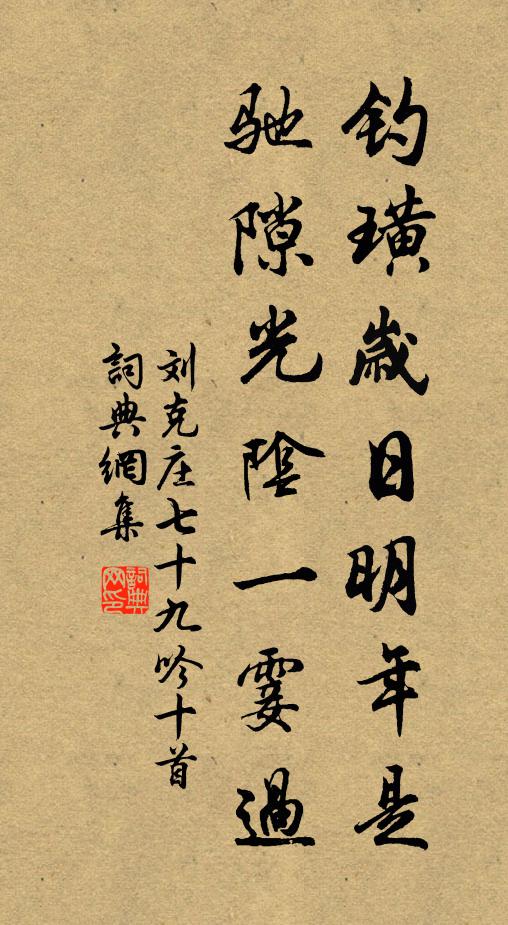 钓璜歲日明年是
馳隙光陰一霎過
刘克庄七十九吟十首
詞典網集
詞典
网印